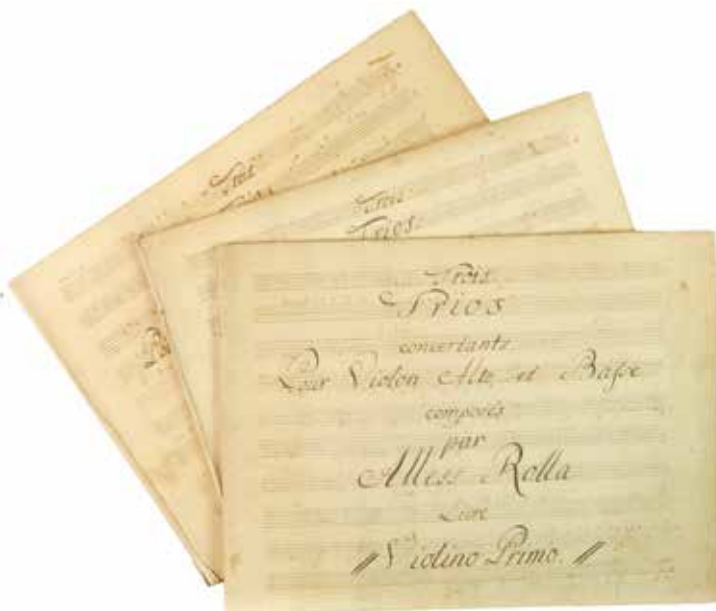 Trois
Trios
Trois
Trios
concertants
Pour Violon Alto et Baſse
composés
par
Aless Rolla
Livre
Violino Primo.